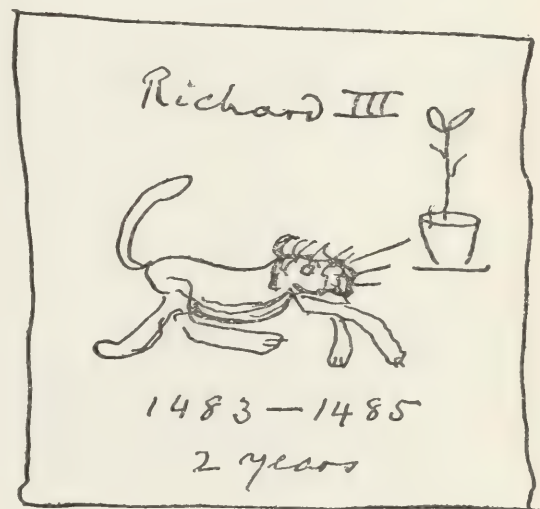 Richard III
1483 — 1485
2 years